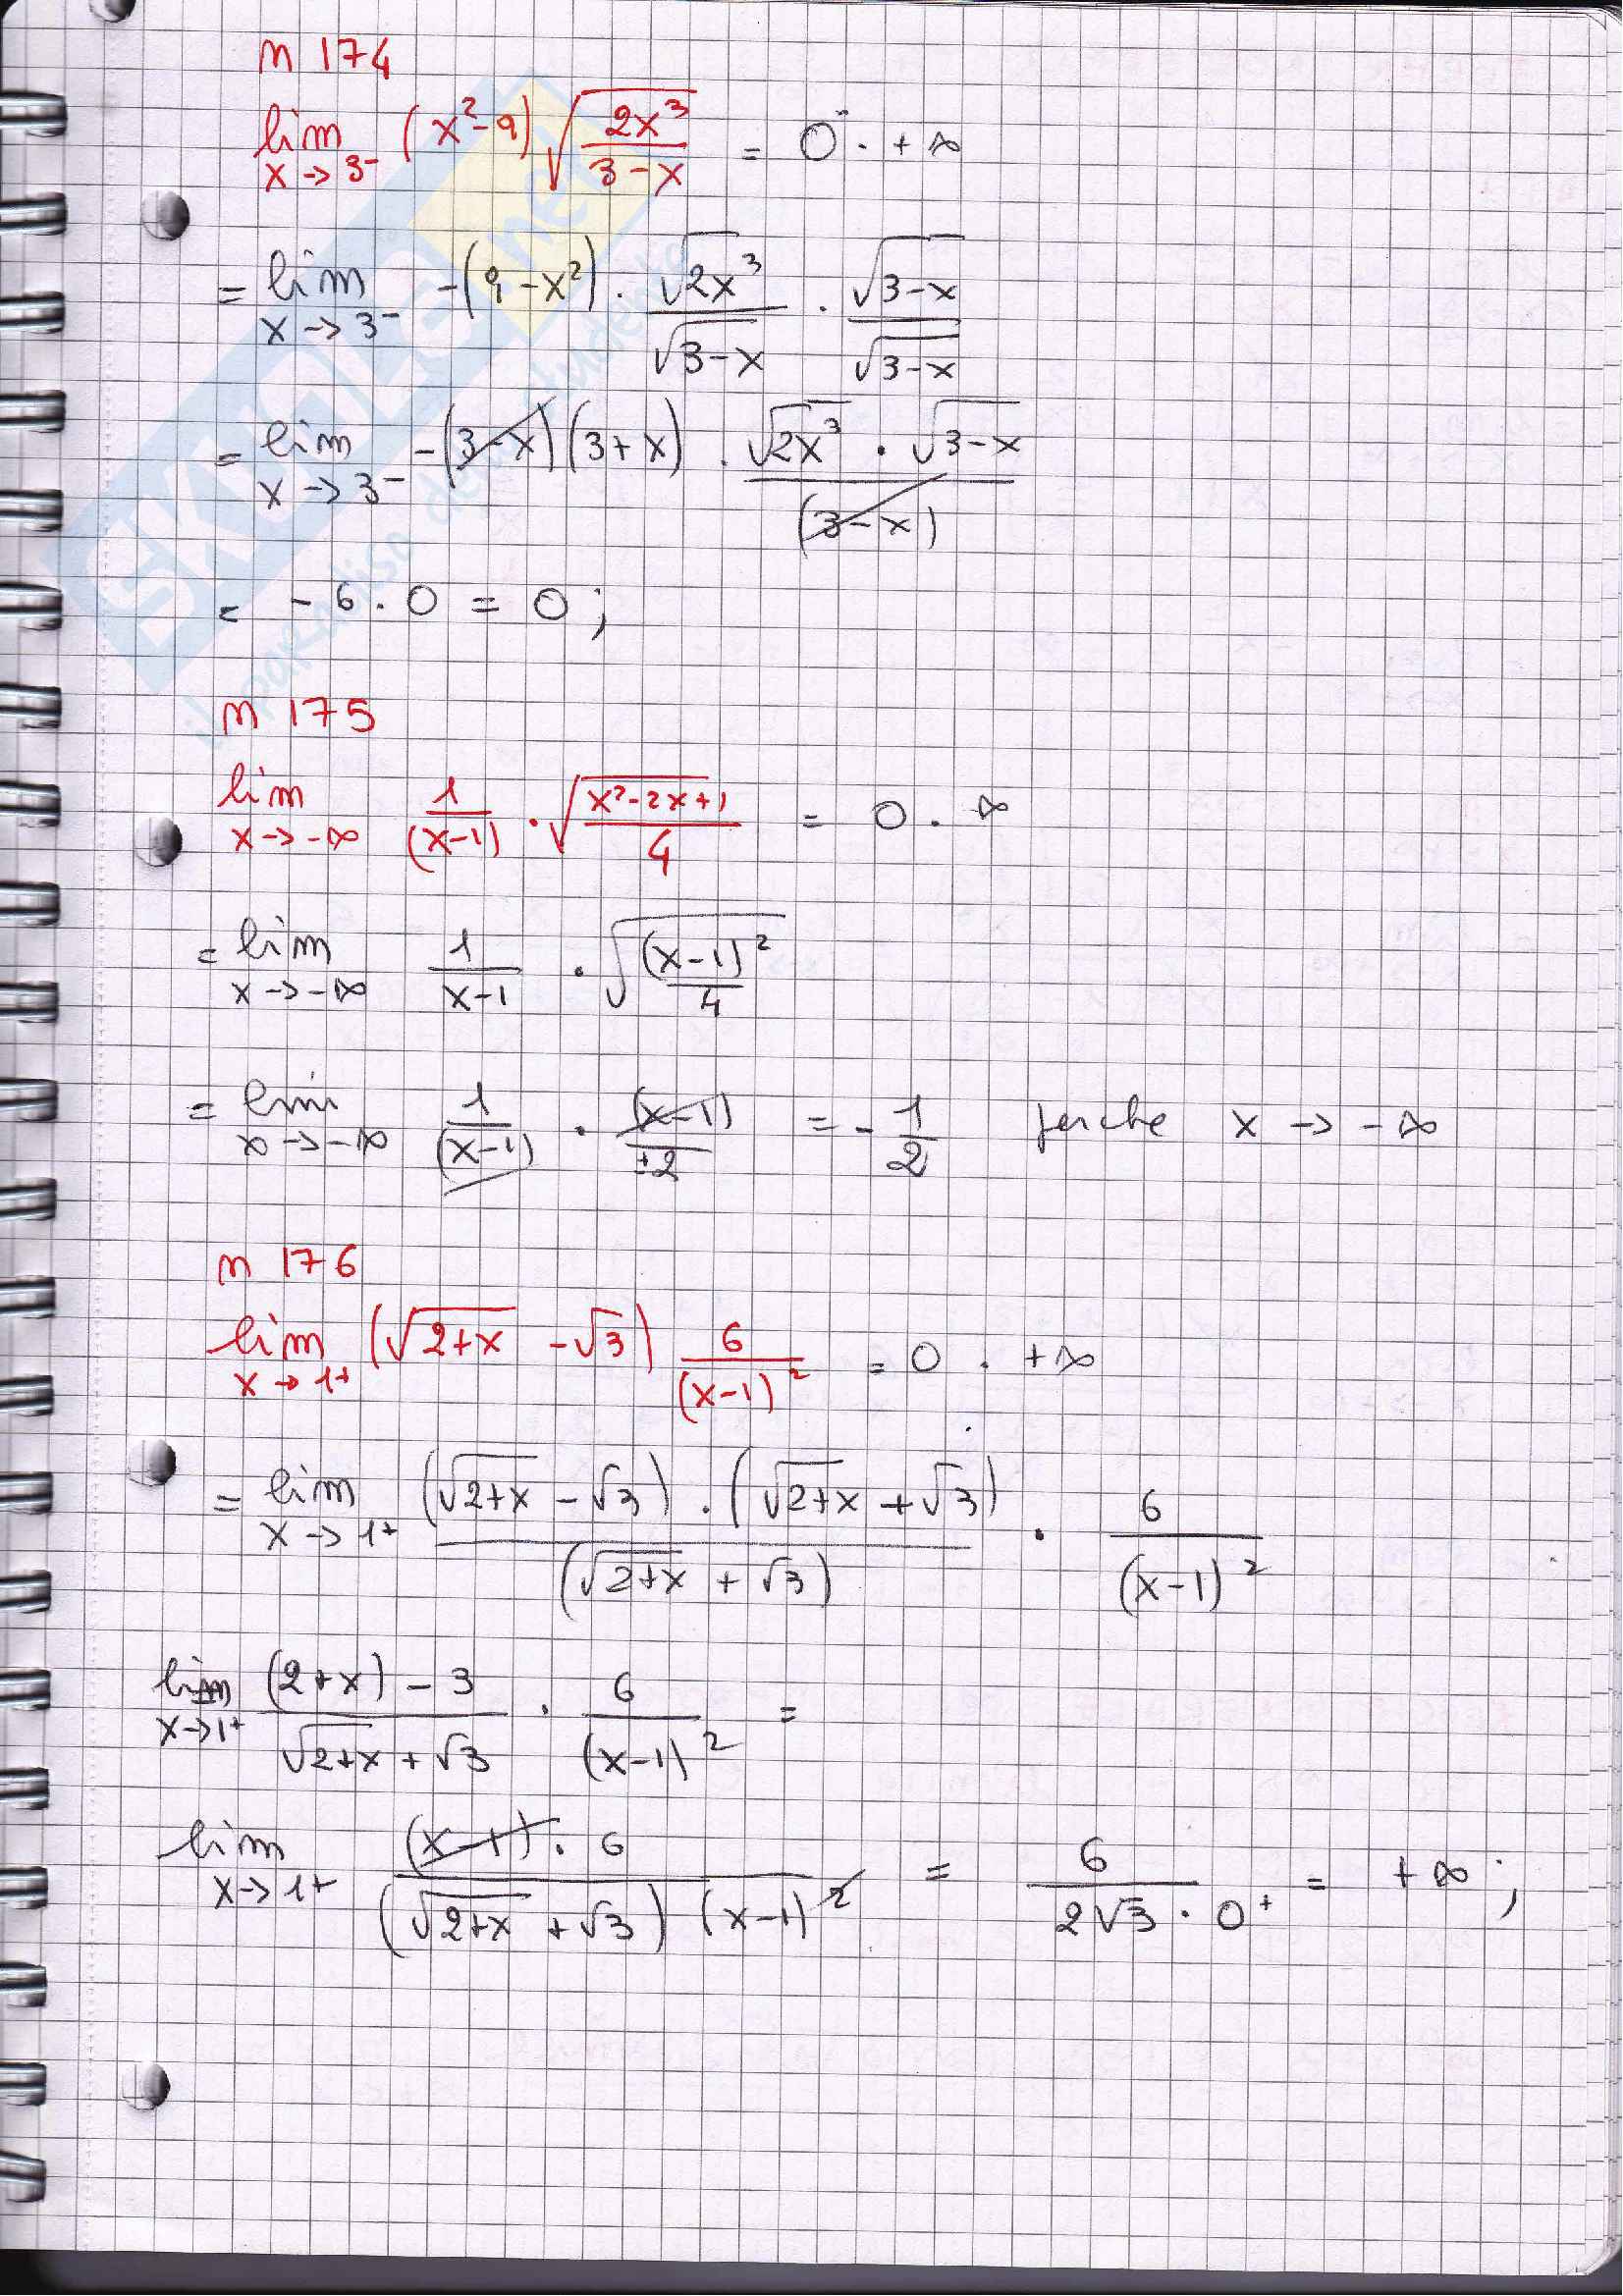 n 174
lim x→3⁻ (x²-9) √(2x³/(3-x)) = 0⁻ · +∞
= lim x→3⁻ -(9-x²) · √2x³/√3-x · √3-x/√3-x
= lim x→3⁻ -(3-x)(3+x) · √2x³ · √3-x/(3-x)
= -6 · 0 = 0 ;
n 175
lim x→-∞ 1/(x-1) · √((x²-2x+1)/4) = 0 · ∞
= lim x→-∞ 1/(x-1) · √((x-1)²/4)
= lim x→-∞ 1/(x-1) · (x-1)/±2 = -1/2 perche x → -∞
n 176
lim x→1⁺ (√2+x - √3) 6/(x-1)² = 0 · +∞
= lim x→1⁺ (√2+x - √3) · (√2+x + √3)/(√2+x + √3) · 6/(x-1)²
lim x→1⁺ (2+x) - 3/√2+x + √3 · 6/(x-1)² =
lim x→1⁺ (x-1) · 6/(√2+x + √3) (x-1)² = 6/2√3 · 0⁺ = +∞ ;
SKUOLA.net
il paradiso dello studente